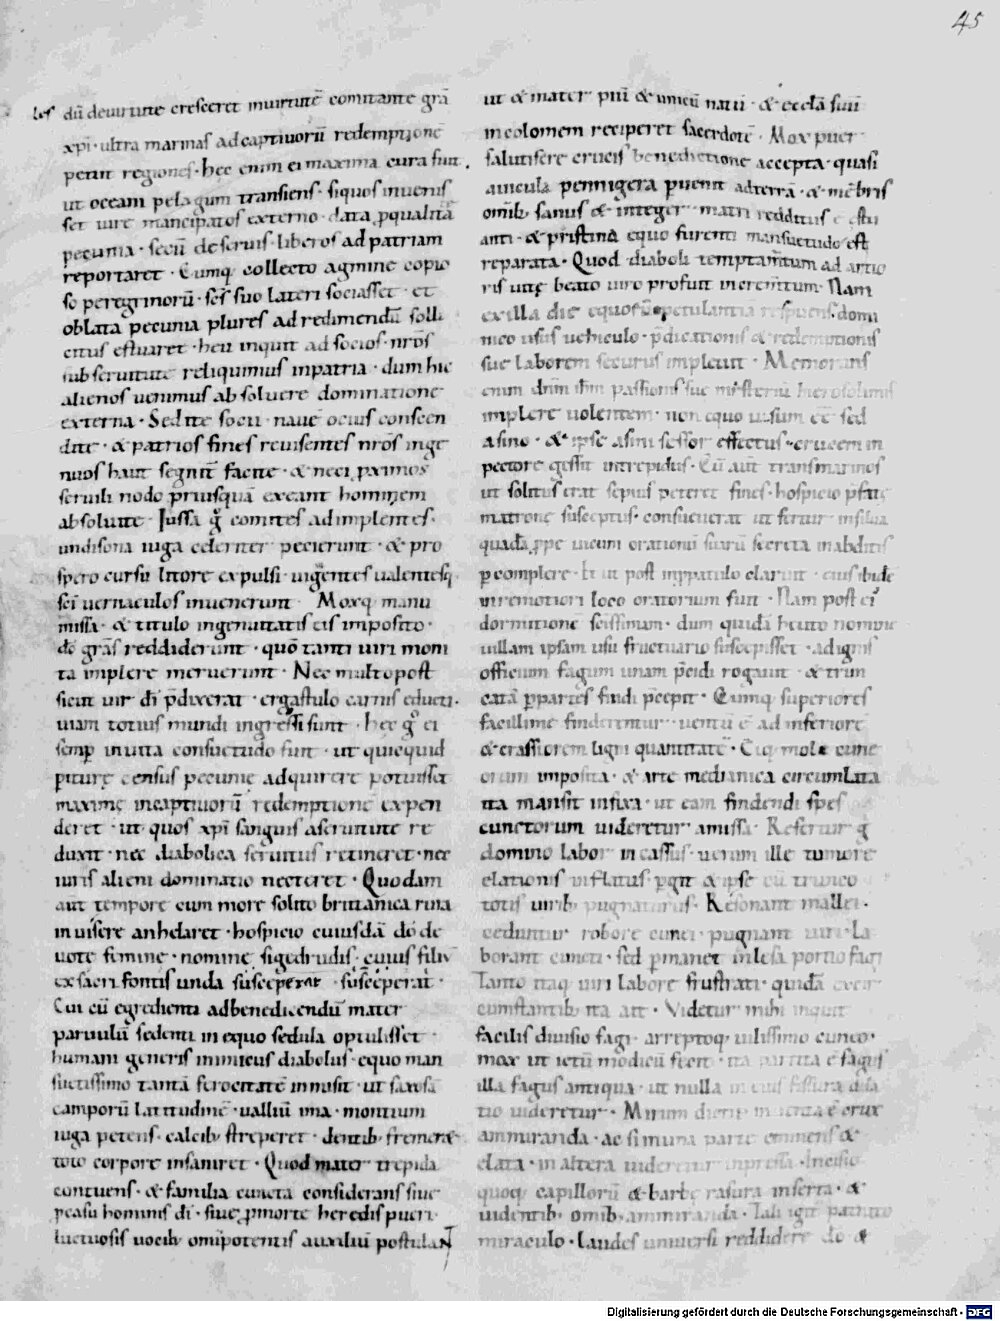 45
dū deuirtute cresceret inuirtutē comitante grā
xp̄i · ultra marinas adcaptiuorū redemptionē
petiit regiones · hec enim ei maxima cura fuit .
ut oceani pelagum transiens · siquos inuenis
set iure mancipatos externo · data p̱qualitā
pecunia · secū deseruis liberos ad patriam
reportaret · Cumq; collecto agmine copio
so peregrinorū · ses suo lateri sociasset · et
oblata pecunia plures ad redimendū solli
citus estuaret · heu inquit ad socios · nr̄os
sub seruitute reliquimus inpatria · dum hic
alienos uenimus absoluere dominatione
externa · Sed ite socii · nauē ocius conscen
dite · & patrios fines reuisentes nr̄os inge
nuos haut segnit̄ facite · & nec p̱ximos
seruili nodo priusquā exeant hominem
absoluite · Jussa g̊ comites adimplentes ·
undisona iuga celeriter petierunt · & pro
spero cursu litore expulsi · uigentes ualentesq;
sc̄i uernaculos inuenerunt · Moxq; manu
missa · & titulo ingenuitatis eis imposito ·
dō grās reddiderunt · quō tanti uiri moni
ta implere meruerunt · Nec multo post
sicut uir dī p̄dixerat · ergastulo carnis educti ·
uiam totius mundi ingressi sunt · hec g̊ ei
semp̱ inuita consuetudo fuit · ut quicquid
census pecunię adquirere potuisset
maxime incaptiuorū redemptione expen
deret · ut quos xp̄i sanguis aseruitute re
duxit · nec diabolica seruitus retineret · nec
iuris alieni dominatio necteret · Quodam
aut̄ tempore cum more solito britanica rura
inuisere anhelaret · hospicio cuiusdā dō de
uote femine · nomine sigedrudis · cuius filiū
ex sacri fontis unda susceperat · susceperat ·
Cui cū egredienti adbenedicendū mater
paruulū sedenti in equo sedula optulisset ·
humani generis inimicus diabolus · equo man
suetissimo tantā ferocitatē inmisit · ut saxosa
camporū latitudinē · uallium ima · montium
iuga petens · calcib; streperet · dentib; fremeret
toto corpore insaniret · Quod mater trepida
contuens · & familia cuncta considerans siue
casu hominis dī · siue p̱ morte heredis pueri
luctuosis uocib; omipotentis auxiliū postulaNT
ut & mater piū & unicū natū · & eccl̄a suū
incolomem reciperet sacerdotē · Mox puer
salutifere crucis benedictione accepta · quasi
auicula pennigera puenit adterrā · & mēbris
omib; sanus & integer matri redditus ē stu
anti · & pristina equo furenti mansuetudo est
reparata · Quod diaboli temptam̄tum ad artio
ris uitę beato uiro profuit incrementum · Nam
exilla die equorū petulantia respuens · domi
nico usus uehiculo · p̄dicationis & redemptionis
sue laborem securus impleuit · Memorans
enim dn̄m ih̄m passionis sue misteriū hierosolimis
implere uolentem · non equo uisum ēē sed
asino · & ipse asini sessor effectus · crucem in
pectore gessit intrepidus · Cū aut̄ transmarinos
ut solitus erat sepius peteret fines · hospicio p̄fatę
matronę susceptus · consueuerat ut fertur insilua
quadā p̱pe uicum orationū suarū secreta inabditis
p̱complere · Et ut post inpatulo claruit · eius ibidē
inremotiori loco oratorium fuit · Nam post ei᾽
dormitione sc̄issimam · dum quidā heuto nomine
uillam ipsam usu fructuario suscepisset · adignis
officium fagum unam p̄cidi rogauit · & trun
catā p̱partes findi p̄cepit · Cumq; superiores
facillime finderentur · uentū ē ad inferiorē
& crassiorem ligni quantitatē · Cuiq; mole cune
orum imposita · & arte mechanica circumlata
ita mansit infixa · ut eam findendi spes
cunctorum uideretur amissa · Refertur g̊
domino labor in cassus · uerum ille tumore
elationis inflatus p̱git & ipse cū trunco
totis uirib; pugnaturus · Resonant mallei ·
ceduntur robore cunei · pugnant uiri · la
borant cuncti · sed p̱manet inlesa portio fagi
Tanto itaq; uiri labore frustrati · quidā circū
cumstantib; ita ait · Videtur mihi inquit
facilis diuisio fagi · arreptoq; uilissimo cuneo ·
mox ut ictū modicū fecit · ita partita ē fagus
illa fagus antiqua · ut nulla in eius fissura disla
tio uideretur · Mirum dictu inuenta ē crux
ammiranda · ac si in una parte eminens &
elata · in altera uideretur inpressa · Incisio
quoq; capillorū & barbę rasura inserta · &
uidentib; omib; ammiranda · Tali igit̄ patrato
miraculo · laudes uniuersi reddidere dō &
Digitalisierung gefördert durch die Deutsche Forschungsgemeinschaft - DFG